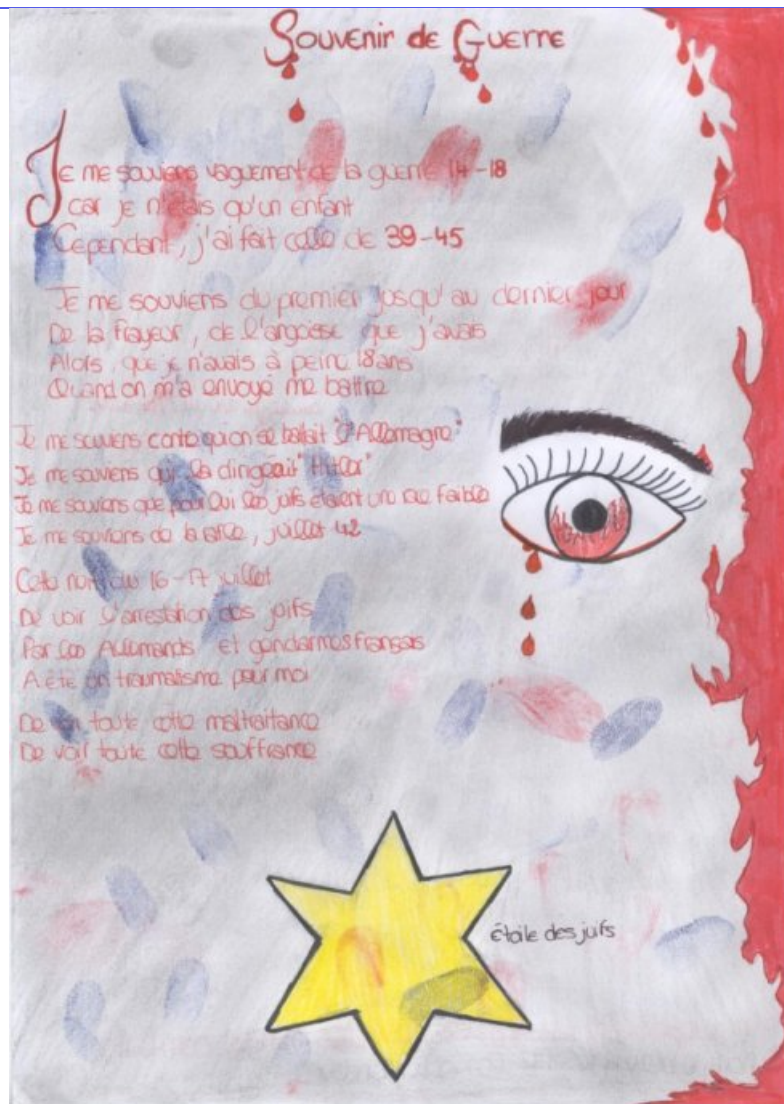 Souvenir de Guerre
Je me souviens vaguement de la guerre 14-18
car je n'étais qu'un enfant
Cependant, j'ai fait celle de 39-45
Je me souviens du premier jusqu'au dernier jour
De la frayeur, de l'angoisse que j'avais
Alors, que je n'avais à peine 18 ans
Quand on m'a envoyé me battre
Je me souviens contre qui on se battait "l'Allemagne"
Je me souviens qui la dirigeait "Hitler"
Je me souviens que pour lui les juifs étaient une race faible
Je me souviens de la rafle, juillet 42
Cette nuit du 16-17 juillet
De voir l'arrestation des juifs
Par les Allemands et gendarmes français
A été un traumatisme pour moi
De voir toute cette maltraitance
De voir toute cette souffrance
étoile des juifs